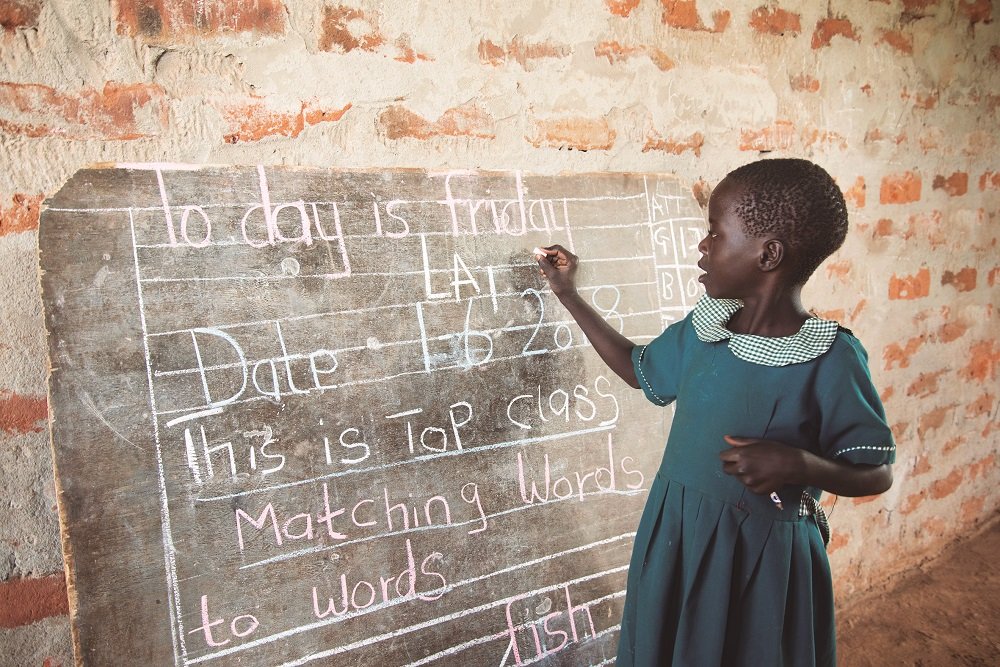 To day is friday
LAT
Date
This is Top class
Matching Words
to Words
fish
ATT
G 17
B